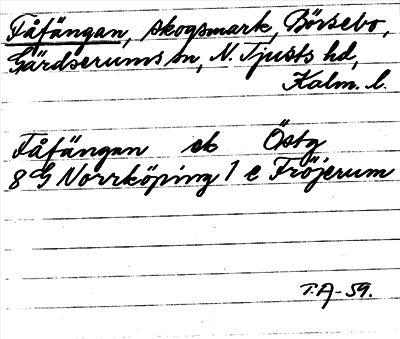 Fåfängan, skogsmark, Börsebo,
Gärdserums sn, N. Tjusts hd,
Kalm. l.
Fåfängan sk Östg
8 G Norrköping 1 e Fröjerum
T.A-59.